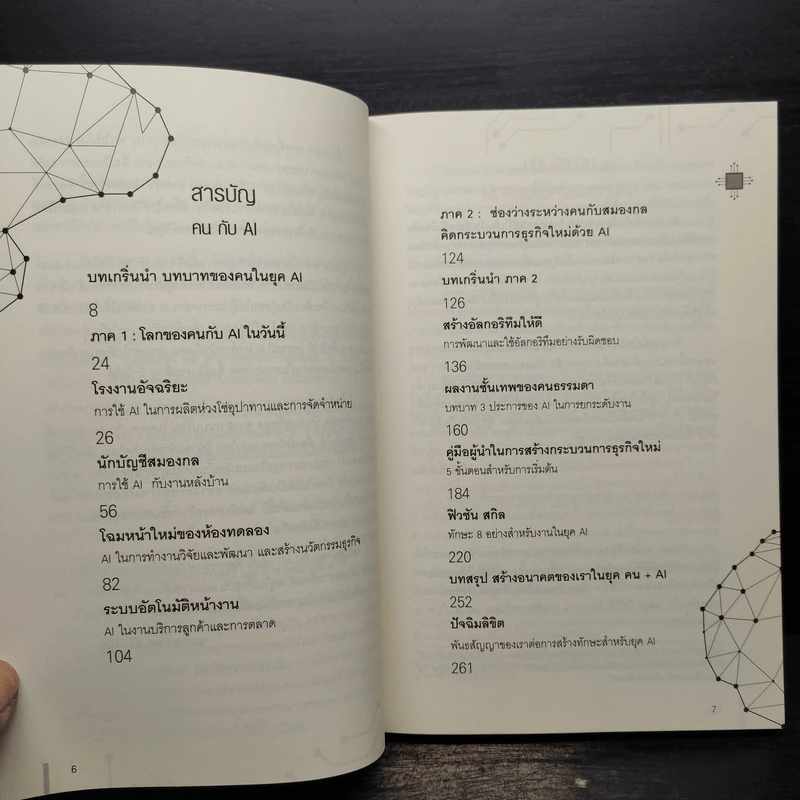 สารบัญ
คน กับ AI
บทเกริ่นนำ บทบาทของคนในยุค AI
8
ภาค 1 : โลกของคนกับ AI ในวันนี้
24
โรงงานอัจฉริยะ
การใช้ AI ในการผลิตห่วงโซ่อุปาทานและการจัดจำหน่าย
26
นักบัญชีสมองกล
การใช้ AI กับงานหลังบ้าน
56
โฉมหน้าใหม่ของห้องทดลอง
AI ในการทำงานวิจัยและพัฒนา และสร้างนวัตกรรมธุรกิจ
82
ระบบอัตโนมัติหน้างาน
AI ในงานบริการลูกค้าและการตลาด
104
6
ภาค 2 : ช่องว่างระหว่างคนกับสมองกล
คิดกระบวนการธุรกิจใหม่ด้วย AI
124
บทเกริ่นนำ ภาค 2
126
สร้างอัลกอริทึมให้ดี
การพัฒนาและใช้อัลกอริทึมอย่างรับผิดชอบ
136
ผลงานชั้นเทพของคนธรรมดา
บทบาท 3 ประการของ AI ในการยกระดับงาน
160
คู่มือผู้นำในการสร้างกระบวนการธุรกิจใหม่
5 ขั้นตอนสำหรับการเริ่มต้น
184
ฟิวชัน สกิล
ทักษะ 8 อย่างสำหรับงานในยุค AI
220
บทสรุป สร้างอนาคตของเราในยุค คน + AI
252
ปัจฉิมลิขิต
พันธสัญญาของเราต่อการสร้างทักษะสำหรับยุค AI
261
7